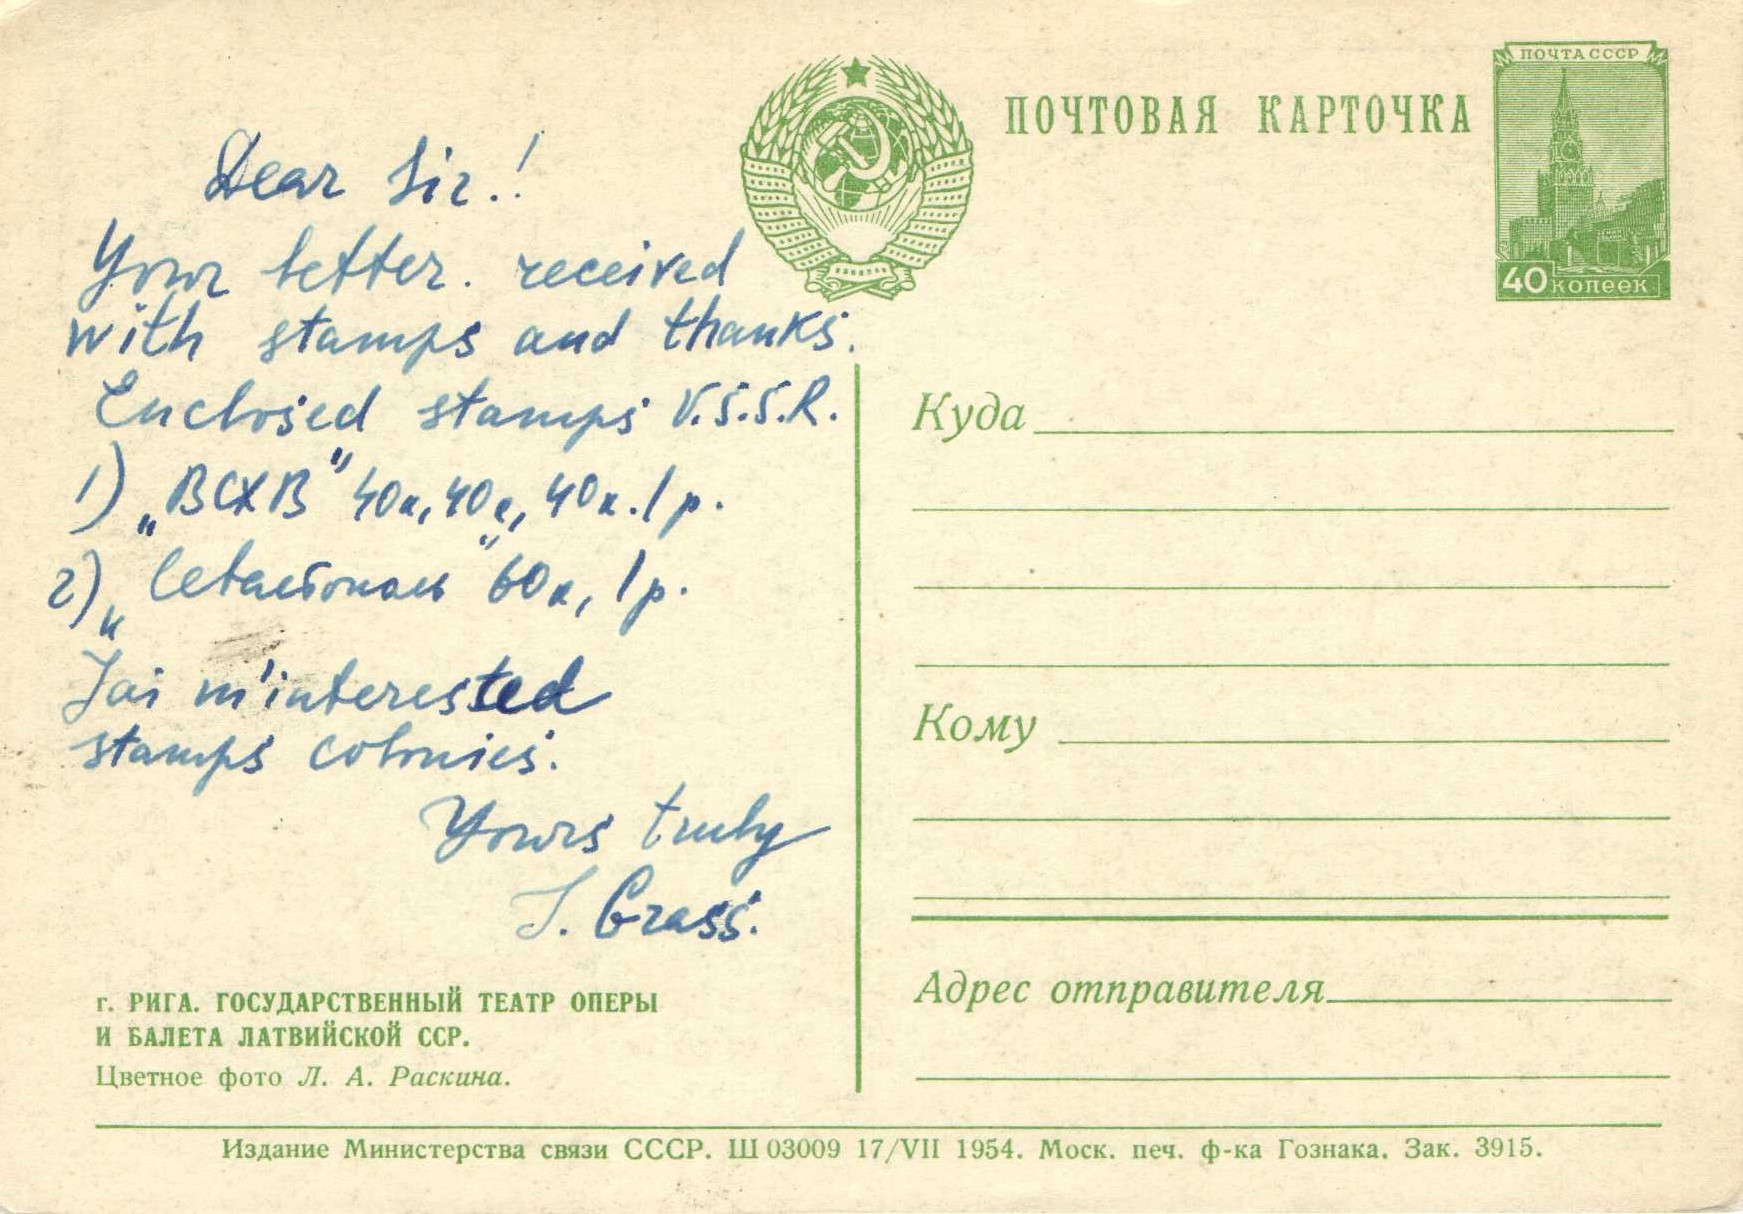 ПОЧТА СССР
40 копеек
ПОЧТОВАЯ КАРТОЧКА
Dear Sir.!
Your letter. received
with stamps and thanks.
Enclosed stamps U.S.S.R.
1) „ВСХВ" 40к, 40к, 40к. 1р.
2) „Севастополь" 60к, 1р.
J'ai m'interested
stamps colonies.
Yours truly
J. Grass.
Куда
Кому
Адрес отправителя
г. РИГА. ГОСУДАРСТВЕННЫЙ ТЕАТР ОПЕРЫ
И БАЛЕТА ЛАТВИЙСКОЙ ССР.
Цветное фото Л. А. Раскина.
Издание Министерства связи СССР. Ш 03009 17/VII 1954. Моск. печ. ф-ка Гознака. Зак. 3915.